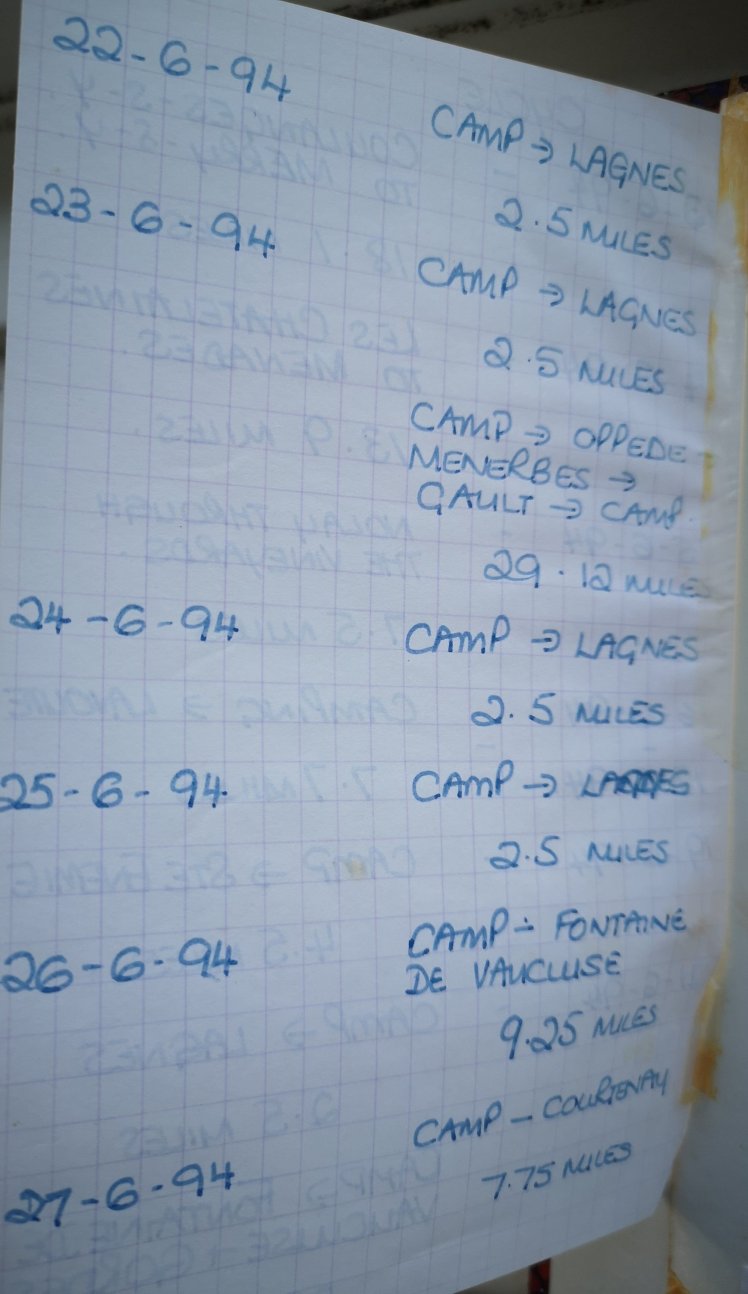 22-6-94
CAMP → LAGNES
2.5 MILES
23-6-94
CAMP → LAGNES
2.5 MILES
CAMP → OPPEDE
MENERBES →
GAULT → CAMP.
29.12 MILES
24-6-94
CAMP → LAGNES
2.5 MILES
25-6-94
CAMP → LAGNES
2.5 MILES
26-6-94
CAMP - FONTAINE
DE VAUCLUSE
9.25 MILES
27-6-94
CAMP - COURTENAY
7.75 MILES